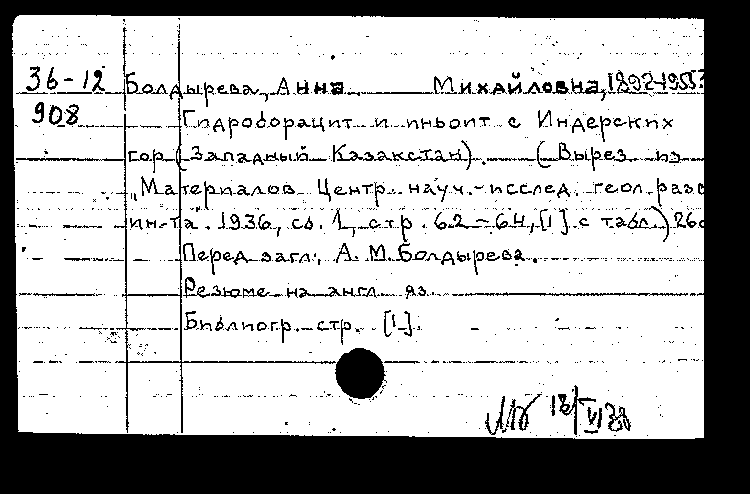 36-12 Болдырева, Анна Михайловна, 1892-1953
908 Гидроборацит и иньоит с Индерских
гор (Западный Казахстан). (Вырез. из
„Материалов Центр. науч.-исслед. геол. разв
ин-та". 1936, сб. 1, стр. 62-64, [1] с табл.) 26с
Перед загл.: А. М. Болдырева.
Резюме на англ. яз.
Библиогр. стр. [1].
18/VI